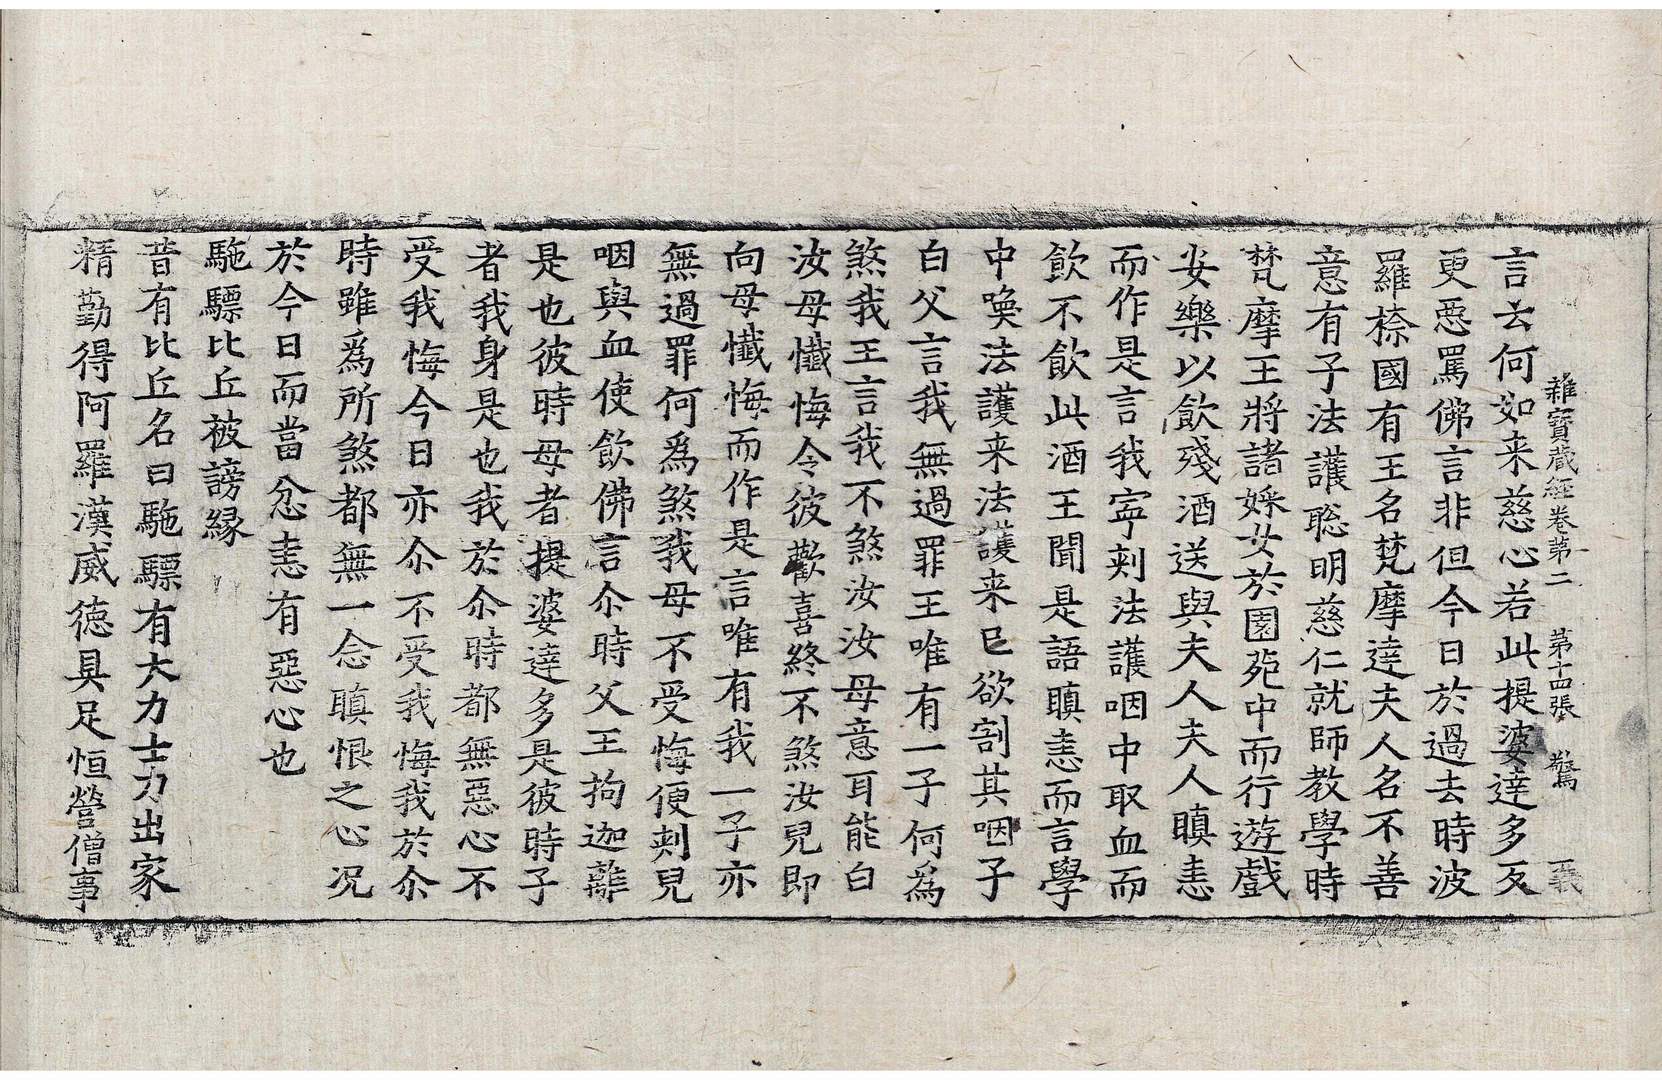 雜寶藏經卷第二 第十四張 驚 義
言去何如来慈心若此提婆達多反
更惡罵佛言非但今日於過去時波
羅㮈國有王名梵摩達夫人名不善
意有子法護聡明慈仁就師教學時
梵摩王將諸婇女於園苑中而行遊戲
安樂以飲殘酒送與夫人夫人瞋恚
而作是言我寧刾法護咽中取血而
飲不飲此酒王聞是語瞋恚而言學
中喚法護来法護来已欲割其咽子
白父言我無過罪王唯有一子何為
煞我王言我不煞汝汝母意耳能白
汝母懺悔令彼歡喜終不煞汝兒即
向母懺悔而作是言唯有我一子亦
無過罪何為煞我母不受悔便刾兒
咽與血使飲佛言尒時父王拘迦離
是也彼時母者提婆達多是彼時子
者我身是也我於尒時都無惡心不
受我悔今日亦尒不受我悔我於尒
時雖為所煞都無一念瞋恨之心况
於今日而當忿恚有惡心也
駞驃比丘被謗緣
昔有比丘名曰駞驃有大力士力出家
精勤得阿羅漢威德具足恒營僧事